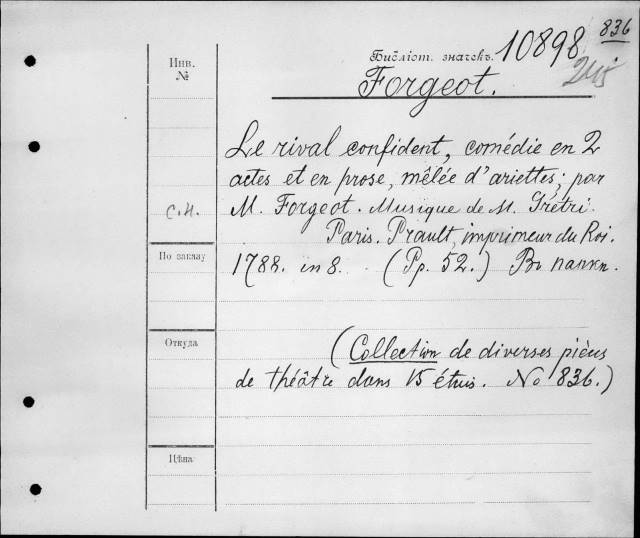 836
Библіот. значекъ. 10898
Инв.
№
Forgeot.
Le rival confident, comédie en 2
actes et en prose, mêlée d'ariettes; par
С.Н.
M. Forgeot. Musique de M. Grétri.
Paris. Prault, imprimeur du Roi.
По заказу
1788. in 8. (Pp. 52.) Въ папкѣ.
Откуда
(Collection de diverses pièces
de théâtre dans 15 étuis. No 836.)
Цѣна